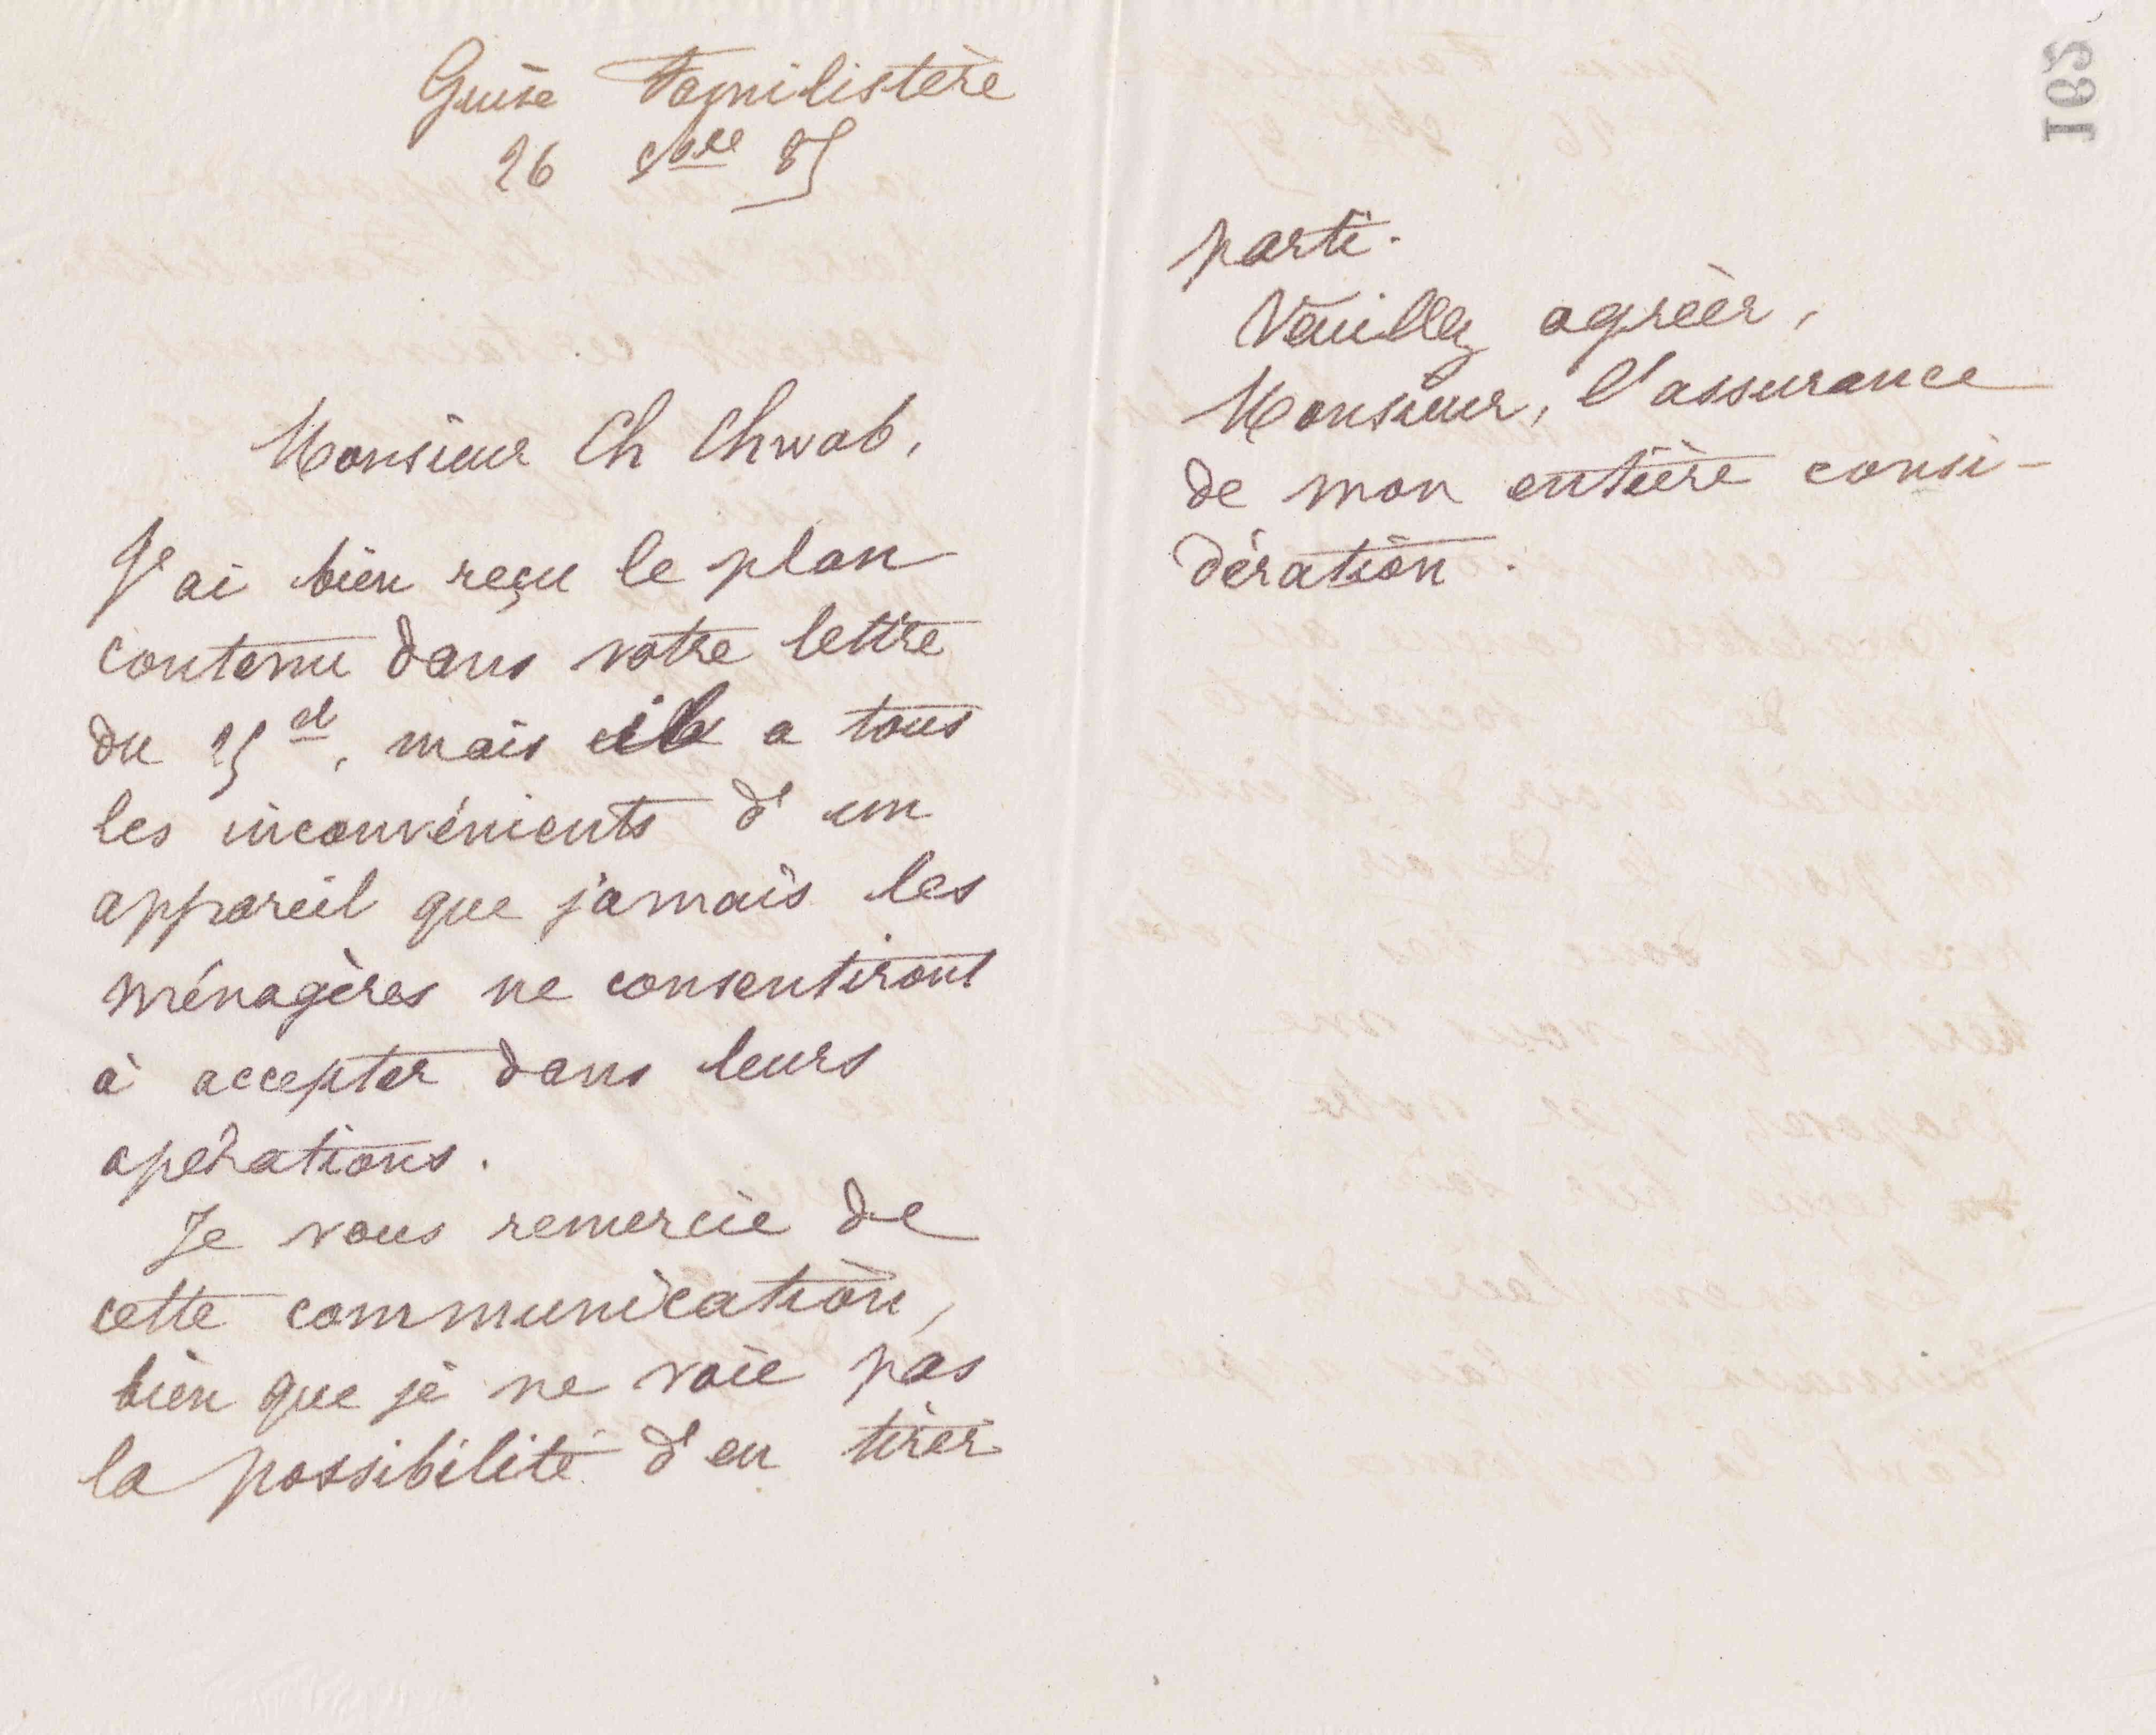 Guise Familistère
26 9bre 85
Monsieur Ch Chwab,
J'ai bien reçu le plan
contenu dans votre lettre
du 25 ct, mais il a tous
les inconvénients d'un
appareil que jamais les
ménagères ne consentiront
à accepter dans leurs
opérations.
Je vous remercie de
cette communication,
bien que je ne voie pas
la possibilité d'en tirer
163
parti.
Veuillez agréer,
Monsieur, l'assurance
de mon entière consi-
dération.